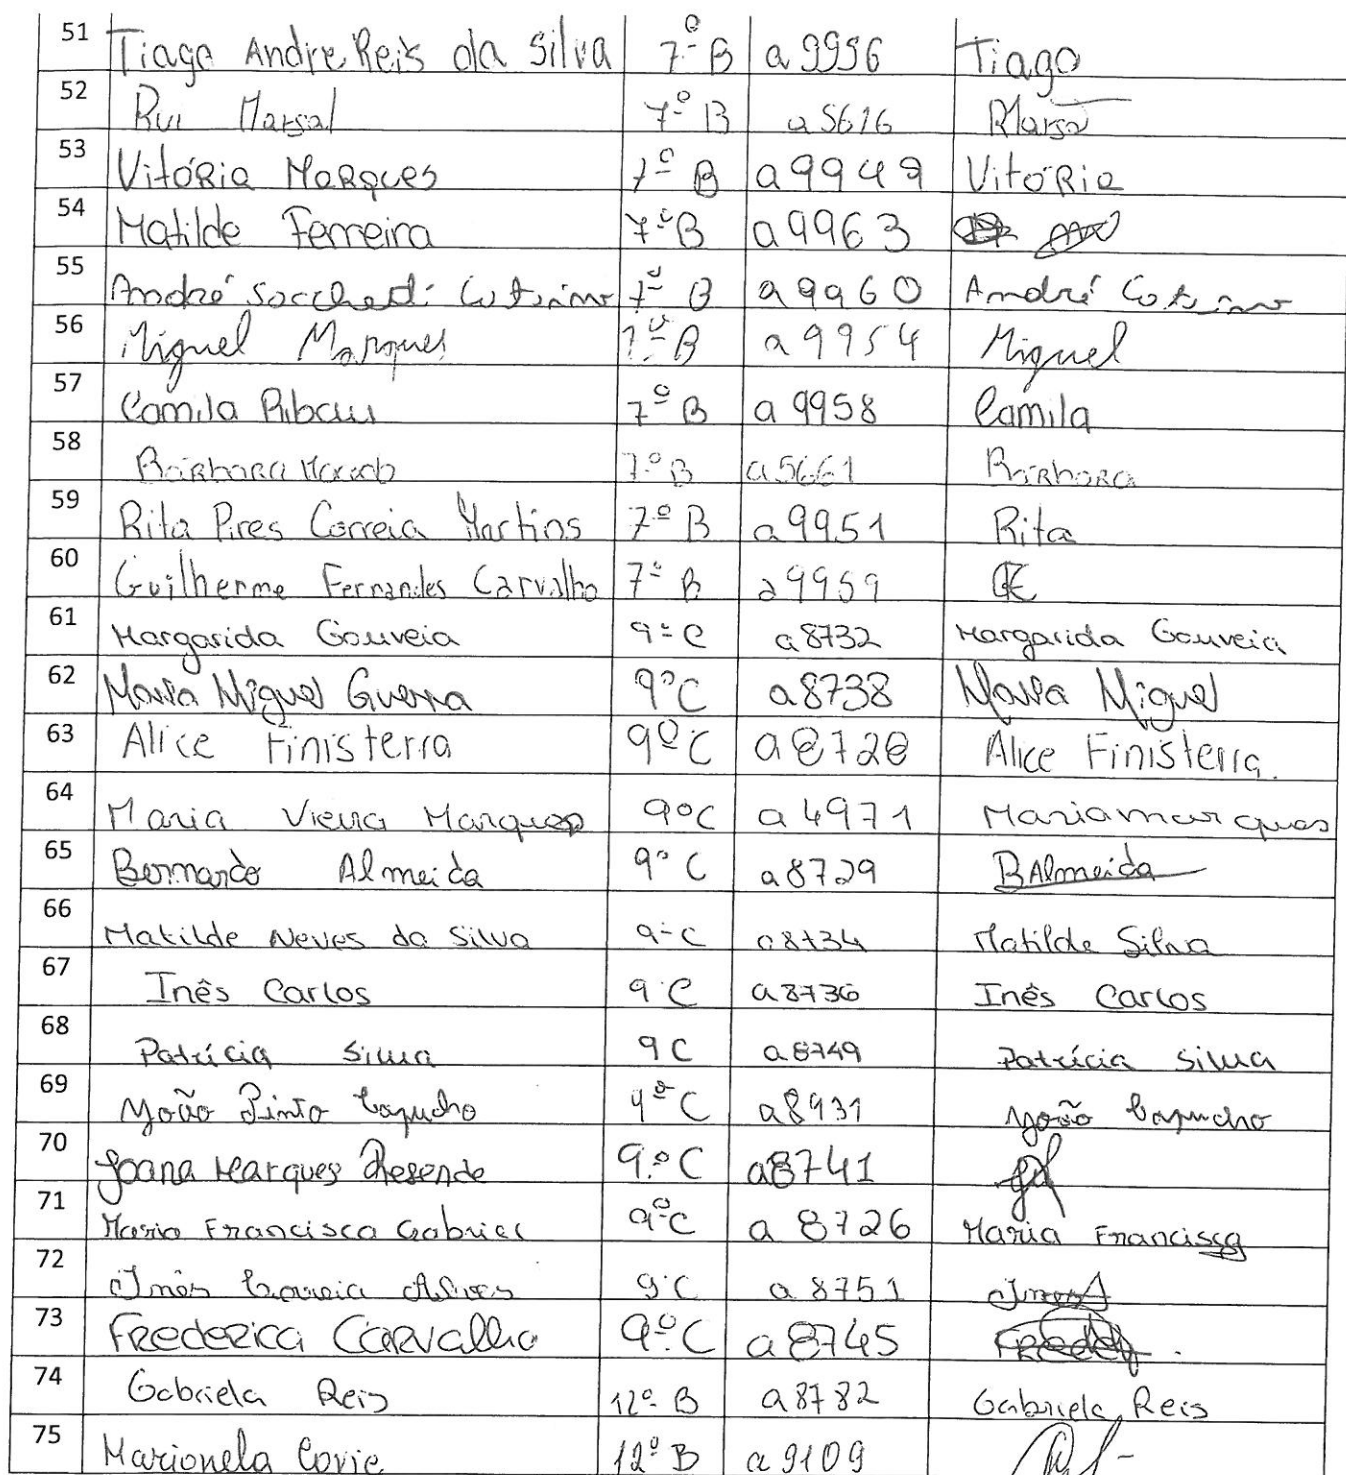 51 Tiago Andre Reis da Silva 7º B a9956 Tiago
52 Rui Marsal 7º B a5616
53 Vitória Marques 7º B a9949 Vitória
54 Matilde Ferreira 7º B a9963
55 André Cotrino 7º B a9960 André Cotrino
56 Miguel Marques 7º B a9954 Miguel
57 Camila Ribau 7º B a9958 Camila
58 Bárbara Macedo 7.º B a5661 Bárbara
59 Rita Pires Correia Martins 7º B a9951 Rita
60 Guilherme Fernandes Carvalho 7º B a9959
61 Margarida Gouveia 9º C a8732 Margarida Gouveia
62 Maria Miguel Guerra 9ºC a8738 Maria Miguel
63 Alice Finisterra 9º C a8728 Alice Finisterra.
64 Maria Vieira Marques 9ºC a4971 Maria marques
65 Bernardo Almeida 9º C a8729 BAlmeida
66 Matilde Neves da Silva 9º C a8734 Matilde Silva
67 Inês Carlos 9º C a8736 Inês Carlos
68 Patrícia Silva 9 C a8749 Patrícia Silva
69 João Pinto Capucho 9º C a8931 João Capucho
70 Joana Marques Resende 9.º C a8741
71 Maria Francisca Gabriel 9ºC a8726 Maria Francisca
72 Inês Correia Alves 9ºC a8751 InêsA
73 Frederica Carvalho 9.º C a8745
74 Gabriela Reis 12º B a8782 Gabriela Reis
75 12º B a9109